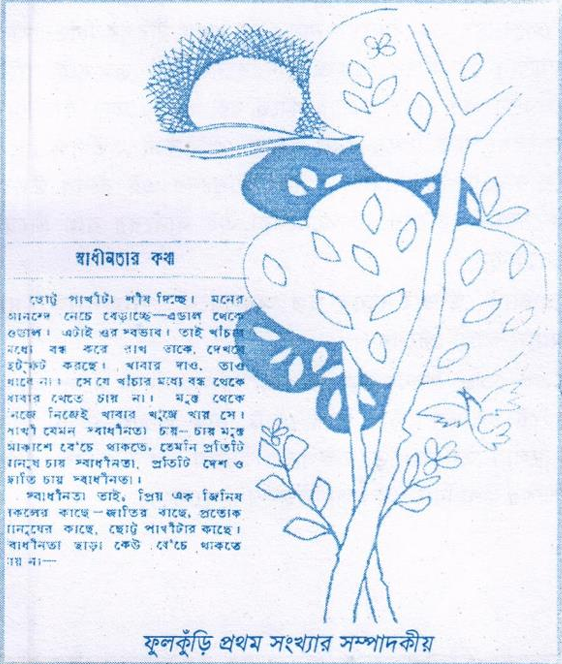 স্বাধীনতার কথা
ছোট্ট পাখীটা শীষ দিচ্ছে। মনের
আনন্দে নেচে বেড়াচ্ছে—এডাল থেকে
ওডাল। এটাই ওর স্বভাব। তাই খাঁচার
মধ্যে বন্ধ করে রাখ তাকে, দেখবে
ছটফট করছে। খাবার দাও, তাও
খাবে না। সে যে খাঁচার মধ্যে বন্ধ থেকে
খাবার খেতে চায় না। মুক্ত থেকে
নিজে নিজেই খাবার খুঁজে খায় সে।
পাখী যেমন স্বাধীনতা চায়—চায় মুক্ত
আকাশে বেঁচে থাকতে, তেমনি প্রতিটি
মানুষ চায় স্বাধীনতা, প্রতিটি দেশ ও
জাতি চায় স্বাধীনতা।
স্বাধীনতা তাই, প্রিয় এক জিনিষ
সকলের কাছে—জাতির কাছে, প্রত্যেক
মানুষের কাছে, ছোট্ট পাখীটার কাছে।
স্বাধীনতা ছাড়া কেউ বেঁচে থাকতে
চায় না—
ফুলকুঁড়ি প্রথম সংখ্যার সম্পাদকীয়